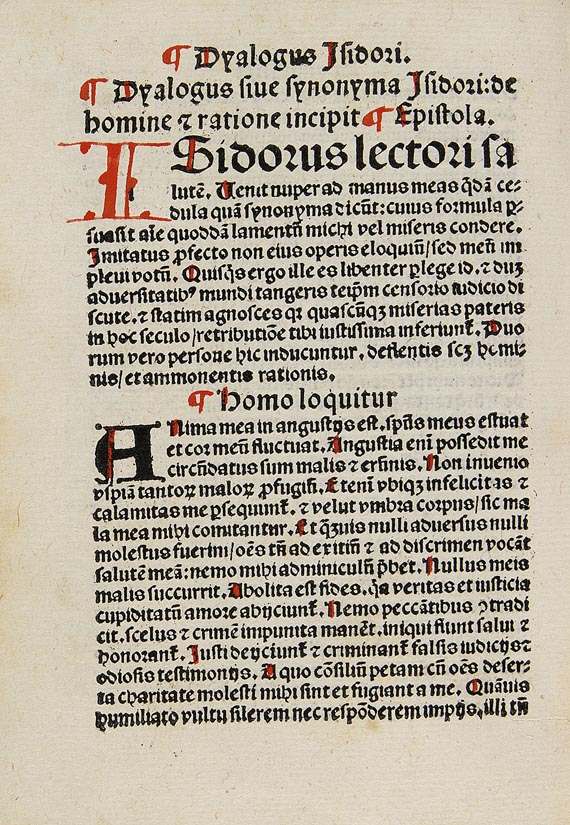 ¶ Dyalogus Isidori.
¶ Dyalogus siue synonyma Isidori: de
homine ⁊ ratione incipit ¶ Epistola.
ISidorus lectori sa
lutē. Uenit nuper ad manus meas q̄dā ce-
dula quā synonyma dicūt: cuius formula ꝑ-
suasit aīe quoddā lamentū michi vel miseris condere.
Imitatus ꝓfecto non eius operis eloquiū/sed meū im
pleui votū. Quisq̄s ergo ille es libenter ꝑlege id. ⁊ duꝫ
aduersitatibꝰ mundi tangeris teip̄m censorio iudicio di
scute. ⁊ statim agnosces qꝛ quascūqꝫ miserias pateris
in hoc seculo/retributiōe tibi iustissima inferiunt̄. Duo
rum vero persone hic inducuntur. deflentis scꝫ homi-
nis/et ammonentis rationis.
¶ Homo loquitur
ANima mea in angustijs est. sp̄us meus estuat
et cor meū fluctuat. Angustia enī possedit me
circūdatus sum malis ⁊ erūnis. Non inuenio
vspiā tantoꝝ maloꝝ ꝓfugiū. Etenī vbiqꝫ infelicitas ⁊
calamitas me ꝑsequunt̄. ⁊ velut vmbra corpus/sic ma
la mea mihi comitantur. Et qꝫuis nulli aduersus nulli
molestus fuerim/oēs tn̄ ad exitiū ⁊ ad discrimen vocāt
salutē meā: nemo mihi adminiculū p̄bet. Nullus meis
malis succurrit. Abolita est fides. q̄a veritas et iusticia
cupiditatū amore abijciunt̄. Nemo peccātibus ꝯtradi
cit. scelus ⁊ crimē impunita manēt. iniqui fiunt salui ⁊
honorant̄. Justi deijciunt̄ ⁊ criminant̄ falsis iudicijs ⁊
odiosis testimonijs. A quo cōsiliū petam cū oēs deser-
ta charitate molesti mihi sint et fugiant a me. Quāuis
humiliato vultu silerem nec respōderem impijs, illi tn̄